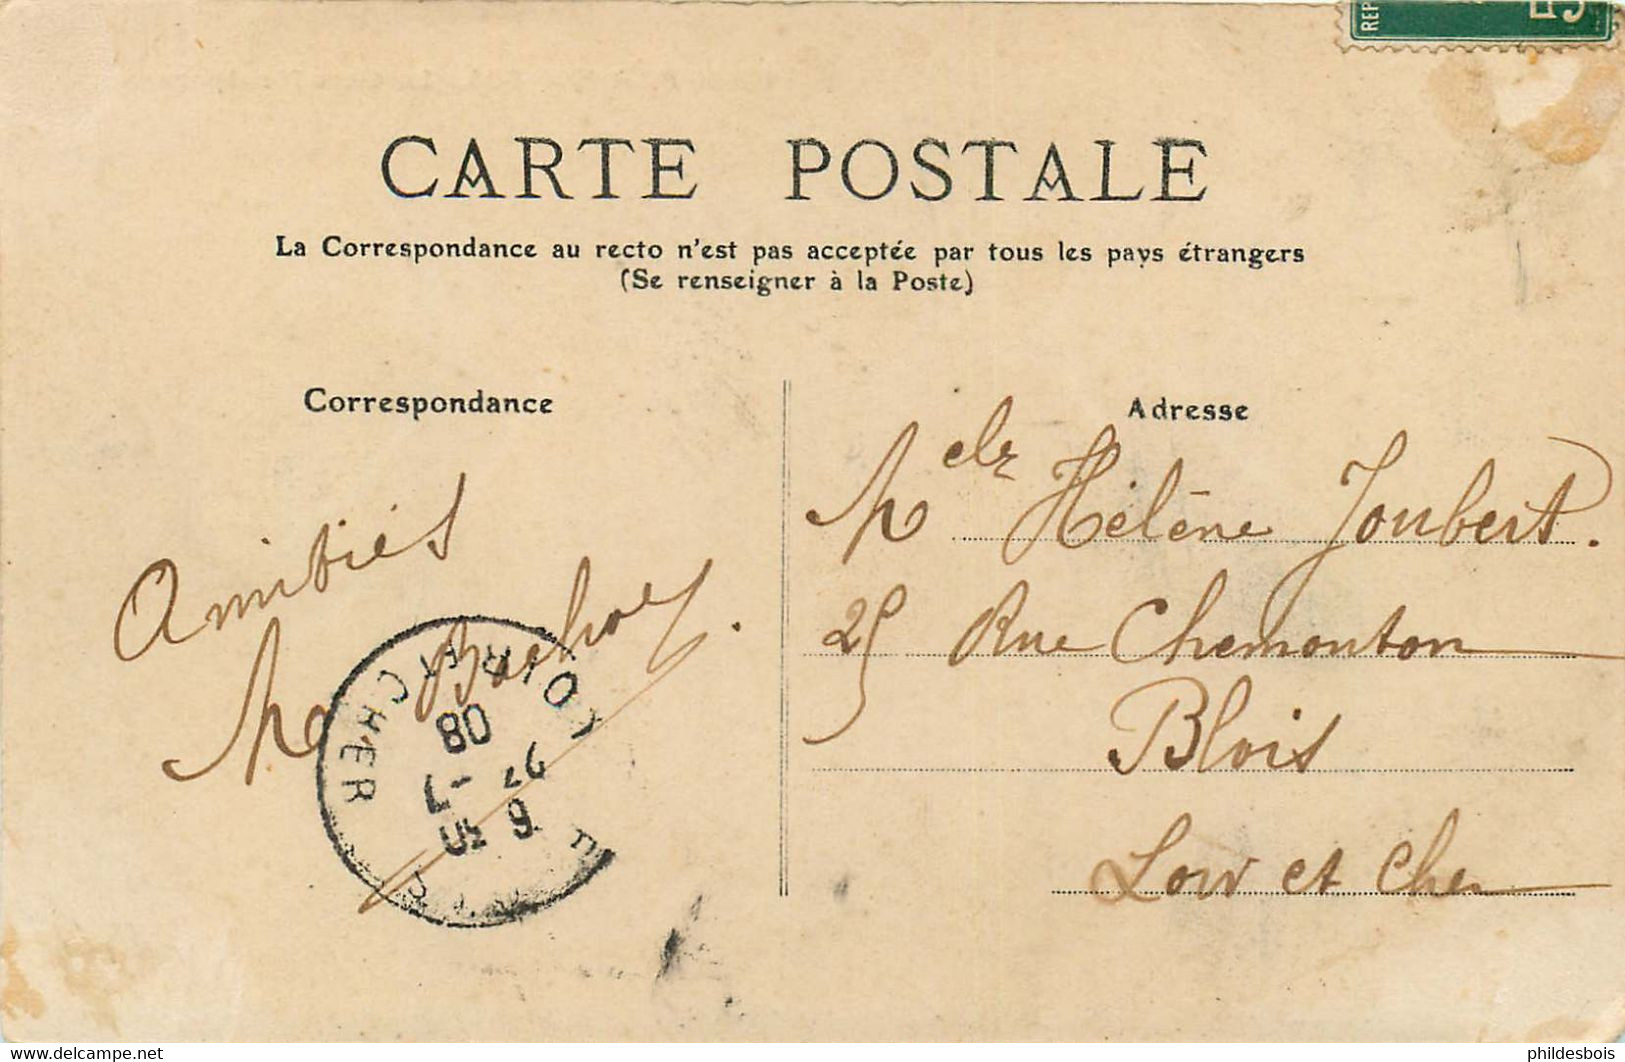 REP
CARTE POSTALE
La Correspondance au recto n'est pas acceptée par tous les pays étrangers
(Se renseigner à la Poste)
Correspondance
Adresse
Amitiés
M
Melle Hélène Joubert.
25 Rue Chemonton
Blois
Loir et Cher
LOIR ET CHER
08
www.delcampe.net
phildesbois